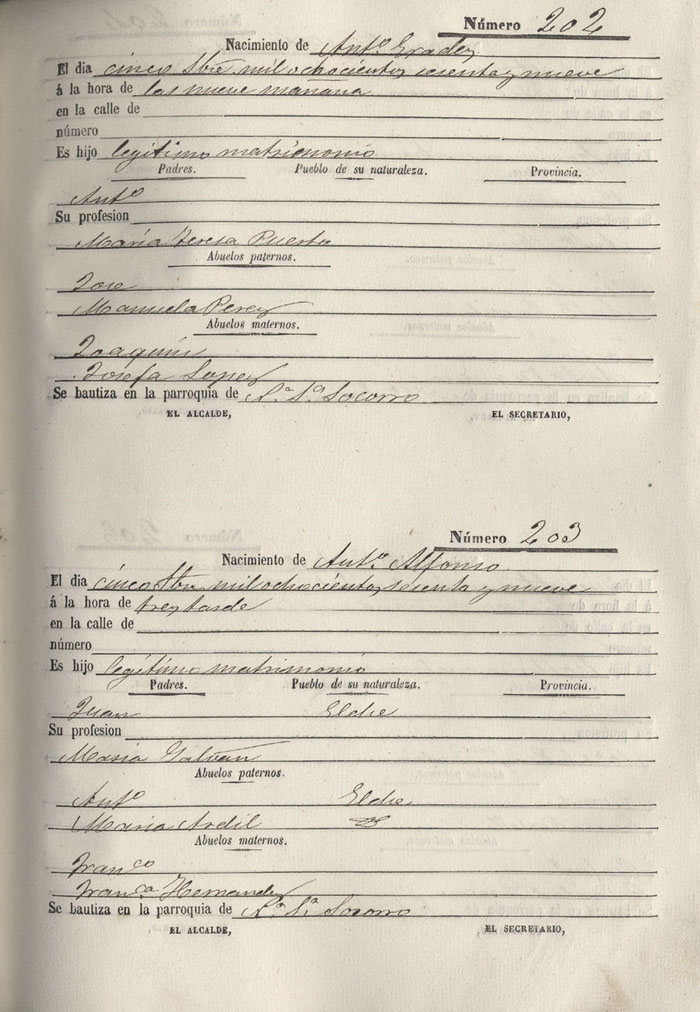 Número 202
Nacimiento de Antº Gradez
El dia cinco 7bre mil ochocientos sesenta y nueve
á la hora de las nueve mañana
en la calle de
número
Es hijo legitimo matrimonio
Padres. Pueblo de su naturaleza. Provincia.
Antº
Su profesion
Maria Teresa Puerto
Abuelos paternos.
Jose
Manuela Perez
Abuelos maternos.
Joaquin
Josefa Lopez
Se bautiza en la parroquia de Nª Sª Socorro
EL ALCALDE, EL SECRETARIO,
Número 203
Nacimiento de Antº Alfonso
El dia cinco 7bre mil ochocientos sesenta y nueve
á la hora de tres tarde
en la calle de
número
Es hijo legitimo matrimonio
Padres. Pueblo de su naturaleza. Provincia.
Juan Elche
Su profesion
Maria Galvan
Abuelos paternos.
Antº Elche
Maria Ardil
Abuelos maternos.
Franco
Franca Hernandez
Se bautiza en la parroquia de Nª Sª Socorro
EL ALCALDE, EL SECRETARIO,